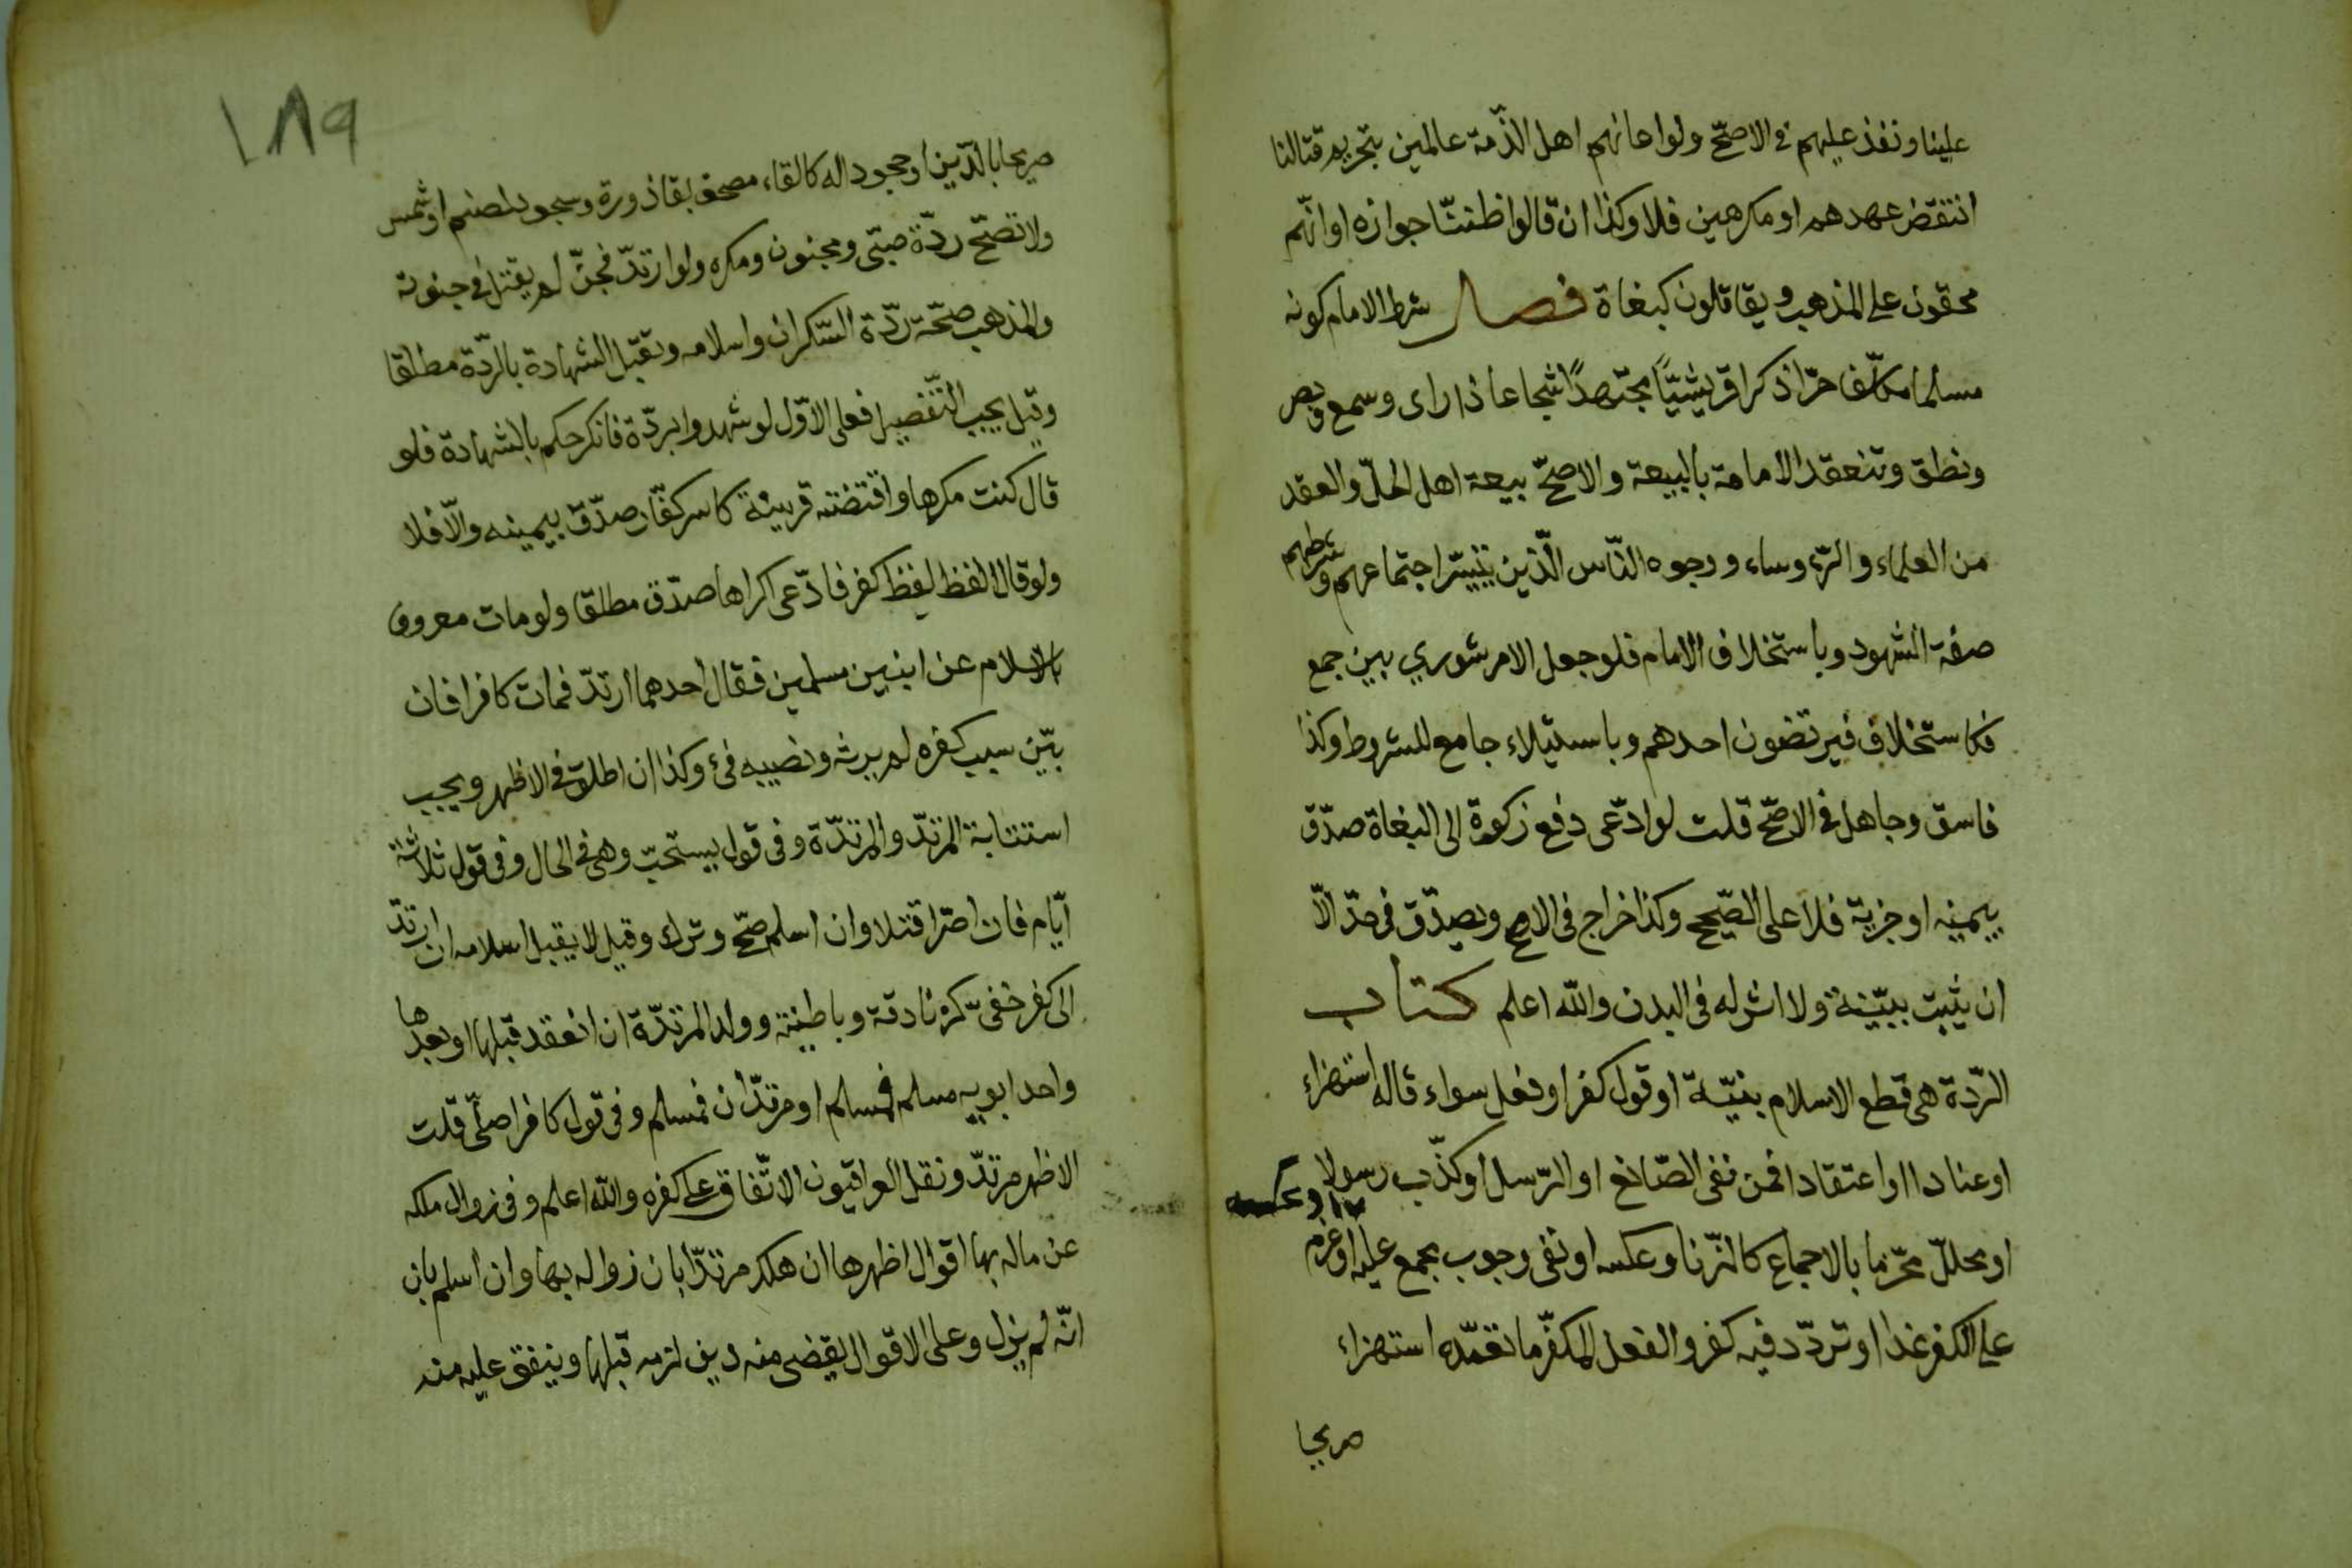 علينا ونفذ عليهم في الاصحّ ولو اعانهم اهل الذّمة عالمين بتحريم قتالنا
انتقض عهدهم او مكرهين فلا وكذا ان قالوا ظننّا جوازه او انّهم
محقون على المذهب ويقاتلون كبغاة فصل شرط الامام كونه
مسلما مكلّفا حرّا ذكرا قريشيّا مجتهدًا شجاعا ذا راى وسمع وبصر
ونطق وتنعقد الامامة بالبيعة والاصحّ بيعة اهل الحلّ والعقد
من العلماء والرّءوساء ووجوه النّاس الّذين يتيسّر اجتماعهم وشرطهم
صفة الشهود وباستخلاف الامام فلو جعل الامر شوري بين جمع
فكاستخلاف فيرتضون احدهم وباستيلاء جامع للشروط وكذا
فاسق وجاهل في الاصحّ قلت لو ادّعى دفع زكوة الى البغاة صدّق
بيمينه او جزية فلا على الصّحيح وكذا خراج في الاصح ويصدّق في حدّ الّا
ان يثبت ببيّنة ولا اثر له في البدن والله اعلم كتاب
الرّدة هي قطع الاسلام بنيّة او قول كفر او فعل سواء قاله استهزاء
او عنادا او اعتقادا فمن نفى الصّانع او الرّسل او كذّب رسولا
او حللّ محرّما بالاجماع كالزّنا وعكسه او نفى وجوب مجمع عليه او عزم
على الكفر غدا او تردّد فيه كفر والفعل المكفّر ما تعمّده استهزاء
صريحا
١٨٩
صريحا بالدّين او جحودا له كالقاء مصحف بقاذورة وسجود لصنم او شمس
ولا تصحّ ردّة صبّى ومجنون ومكره ولو ارتدّ فجنّ لم يقتل في جنونه
والمذهب صحّة ردّة السّكران واسلامه وتقبل الشهادة بالرّدة مطلقا
وقيل يجب التّفصيل فعلى الاوّل لو شهدوا بردّة فانكر حكم بالشهادة فلو
قال كنت مكرها واقتضته قرينة كاسر كفّار صدّق بيمينه والّا فلا
ولو قالا لفظ لفظ كفر فادّعى اكراها صدّق مطلقا ولو مات معروف
بالاسلام عن ابنين مسلمين فقال احدهما ارتدّ فمات كافرا فان
بيّن سبب كفره لم يرثه ونصيبه فئ وكذا ان اطلق في الاظهر ويجب
استتابة المرتدّ والمرتدّة وفى قول يستحبّ وهى في الحال وفى قول ثلاثة
ايّام فان اصّرا قتلا وان اسلم صحّ وترك وقيل لا يقبل اسلامه ان ارتدّ
الى كفر خفىّ كزنادقة وباطنية وولد المرتدّة ان انعقد قبلها او بعدها
واحد ابويه مسلم فمسلم او مرتدّان فمسلم وفى قول كافر اصلّى قلت
الاظهر مرتدّ ونقل العراقيّون الاتّفاق على كفره والله اعلم وفى زوال ملكه
عن ماله بها اقوال اظهرها ان هلك مرتدّا بان زواله بها وان اسلم بان
انّه لم يزل وعلى الاقوال يقضى منه دين لزمه قبلها وينفق عليه منه